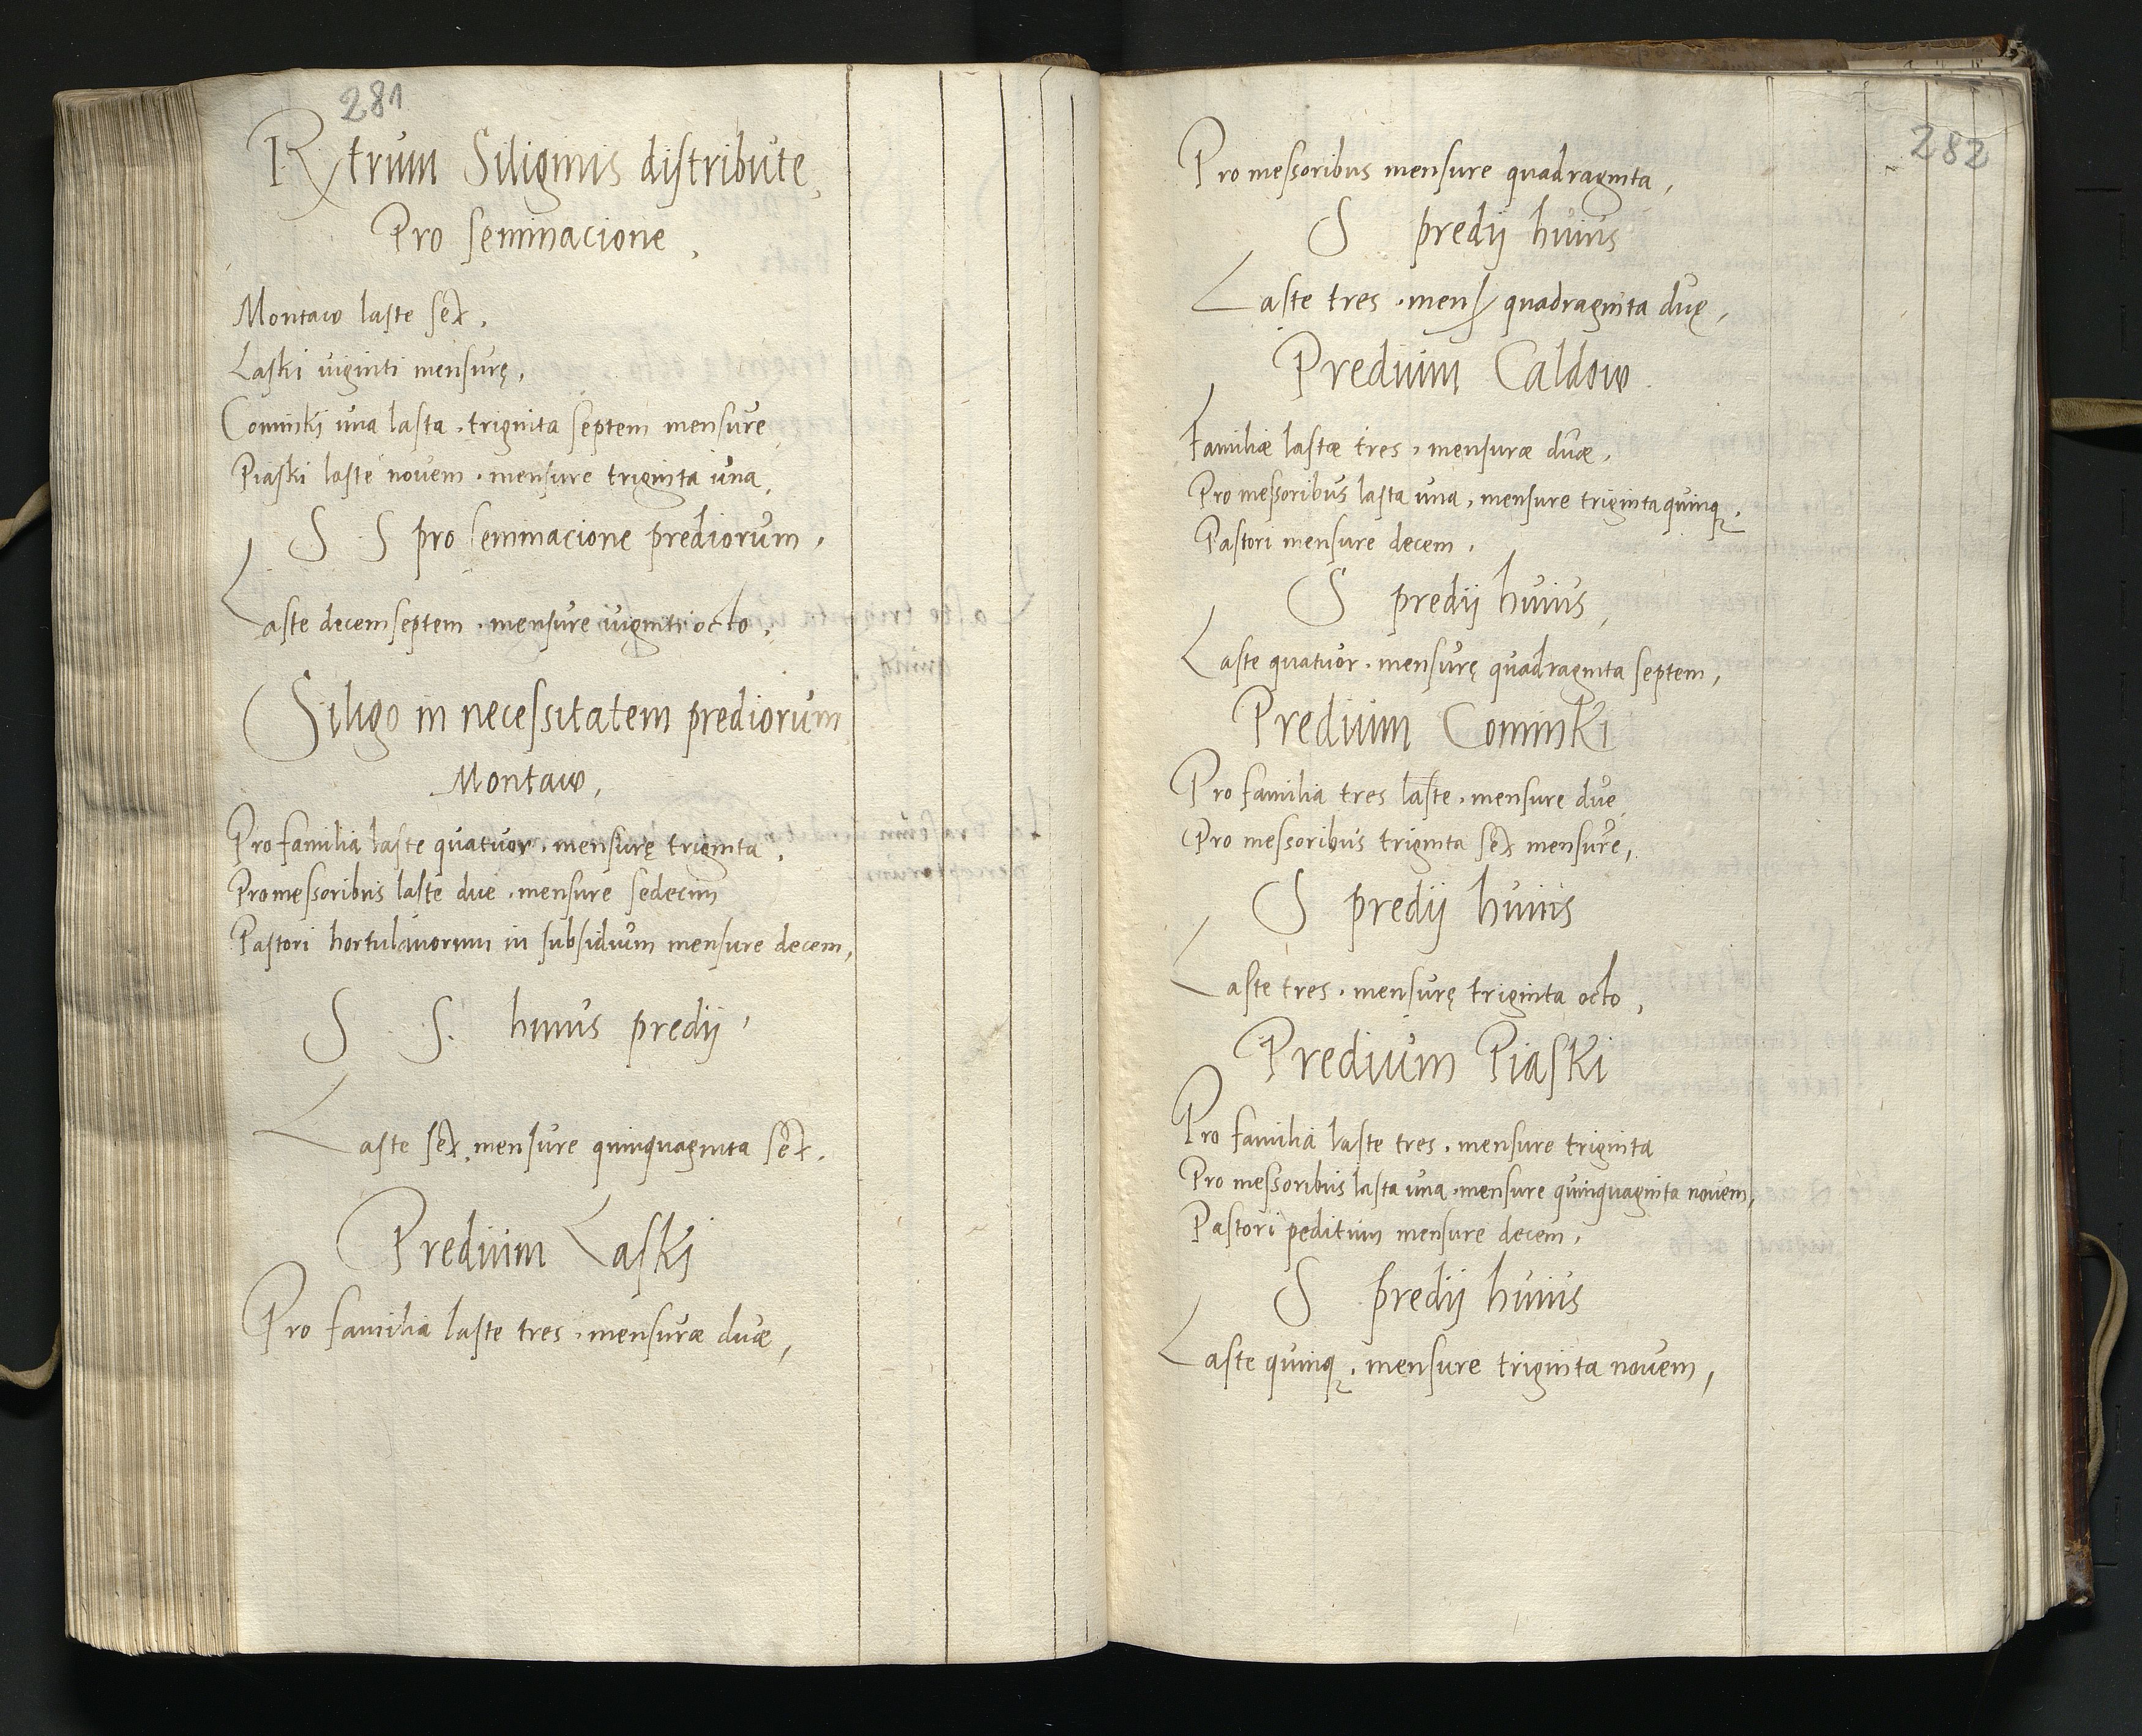 281
Rxtrum Siliginis distribute,
Pro seminacione,
Montaw laste sex,
Laski viginti mensurę,
Cominki una lasta, triginta septem mensure,
Piaski laste novem, mensure triginta una,
S S pro seminacione prediorum,
Laste decem septem, mensure viginti octo,
Siligo in necessitatem prediorum
Montaw,
Pro familia laste quatuor, mensurę triginta,
Pro messoribus laste due, mensure sedecim
Pastori hortulanorum in subsidium mensure decem,
S S. huius predij,
Laste sex, mensure quinquaginta sex,
Predium Laski
Pro familia laste tres, mensuræ duæ,
282
Pro messoribus mensure quadraginta,
S predij huius
Laste tres, mens quadraginta duę,
Predium Caldow
Familiæ lastæ tres, mensuræ duæ,
Pro messoribus lasta una, mensure triginta quinq,
Pastori mensure decem,
S predij huius,
Laste quatuor, mensurę quadraginta septem,
Predium Cominki
Pro familia tres laste, mensure due,
Pro messoribus triginta sex mensure,
S predij huius
Laste tres, mensurę triginta octo,
Predium Piaski
Pro familia laste tres, mensure triginta
Pro messoribus lasta una, mensure quinquaginta novem,
Pastori peditum mensure decem,
S predij huius
Laste quinq, mensure triginta novem,